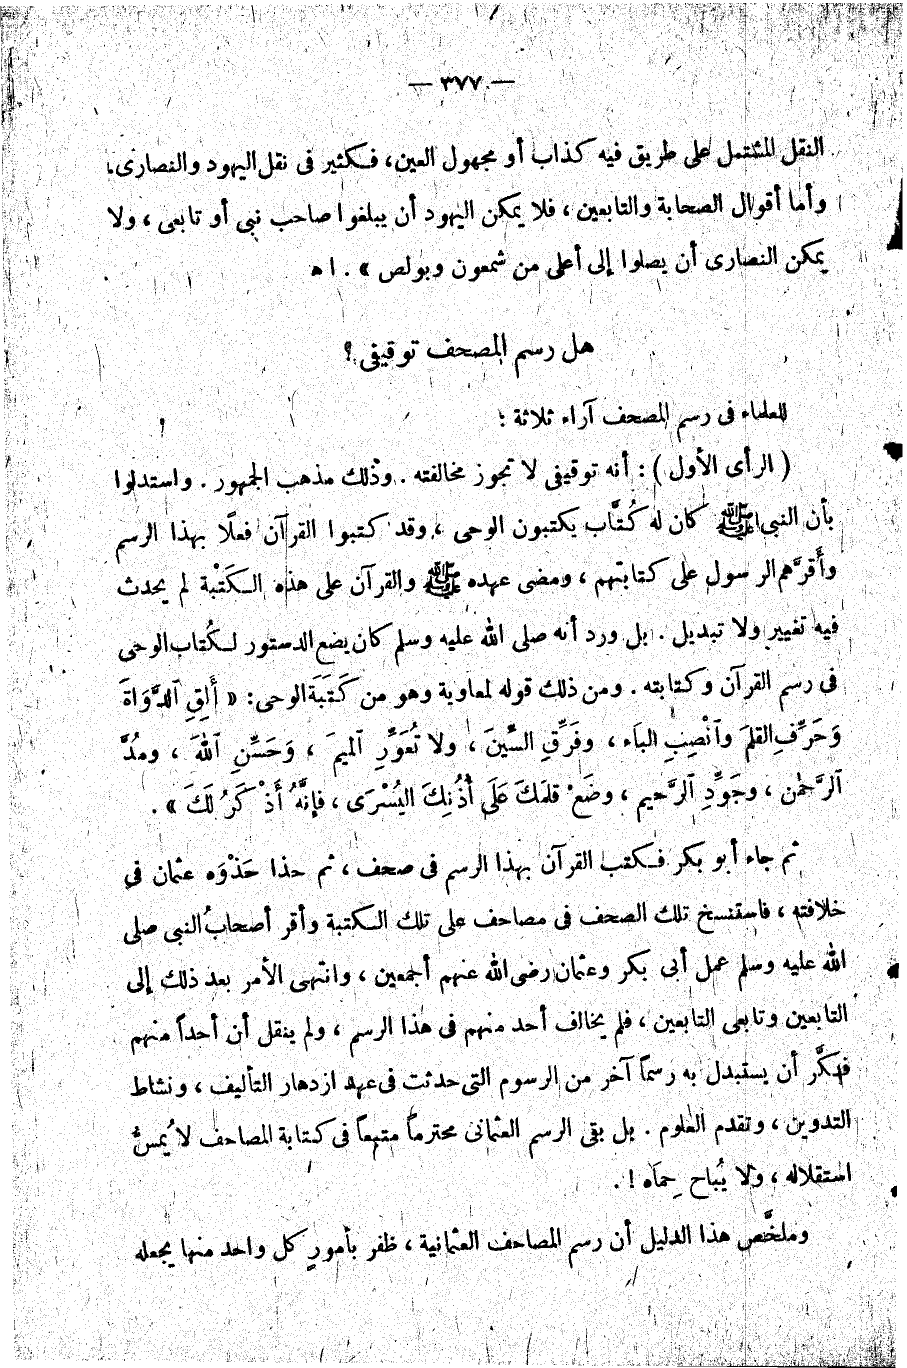 — ٣٧٧ —
النقل المشتمل على طريق فيه كذاب أو مجهول العين، فكثير فى نقل اليهود والنصارى،
وأما أقوال الصحابة والتابعين، فلا يمكن اليهود أن يبلغوا صاحب نبى أو تابعى، ولا
يمكن النصارى أن يصلوا إلى أعلى من شمعون وبولص » . ا ه
هل رسم المصحف توقيفى ؟
للعلماء فى رسم المصحف آراء ثلاثة :
( الرأى الأول ) : أنه توقيفى لا تجوز مخالفته . وذلك مذهب الجمهور . واستدلوا
بأن النبى ﷺ كان له كُتَّاب يكتبون الوحى ، وقد كتبوا القرآن فعلًا بهذا الرسم
وأَقرَّهم الرسول على كتابتهم ، ومضى عهده ﷺ والقرآن على هذه الكَتْبة لم يحدث
فيه تغيير ولا تبديل . بل ورد أنه صلى الله عليه وسلم كان يضع الدستور لكُتاب الوحى
فى رسم القرآن وكتابته . ومن ذلك قوله لمعاوية وهو من كَتَبَة الوحى : « أَلِقِ ٱلدَّوَاةَ
وَحَرِّفِ القلمَ وٱنْصِبِ الباَء ، وفَرِّقِ السِّينَ ، ولا تُعَوِّرِ ٱلميمَ ، وَحَسِّنِ ٱللهَ ، ومُدَّ
ٱلرَّحمٰن ، وجَوِّدِ ٱلرَّحيم ، وضَعْ قلمَكَ عَلَى أُذُنِكَ اليُسْرَى ، فإنَّهُ أَذْكَرُ لَكَ » .
ثم جاء أبو بكر فكتب القرآن بهذا الرسم فى صحف ، ثم حذا حَذْوَه عثمان فى
خلافته ، فاستنسخ تلك الصحف فى مصاحف على تلك الكتبة وأقر أصحابُ النبى صلى
الله عليه وسلم عمل أبى بكر وعثمان رضى الله عنهم أجمعين ، وانتهى الأمر بعد ذلك إلى
التابعين وتابعى التابعين ، فلم يخالف أحد منهم فى هذا الرسم ، ولم ينقل أن أحداً منهم
فكَّر أن يستبدل به رسماً آخر من الرسوم التى حدثت فى عهد ازدهار التأليف ، ونشاط
التدوين ، وتقدم العلوم . بل بقى الرسم العثمانى محترماً متبعاً فى كتابة المصاحف لا يُمسُّ
استقلاله ، ولا يُباح حِماَه ! .
وملخَّص هذا الدليل أن رسم المصاحف العثمانية ، ظفر بأمورٍ كل واحد منها يجعله